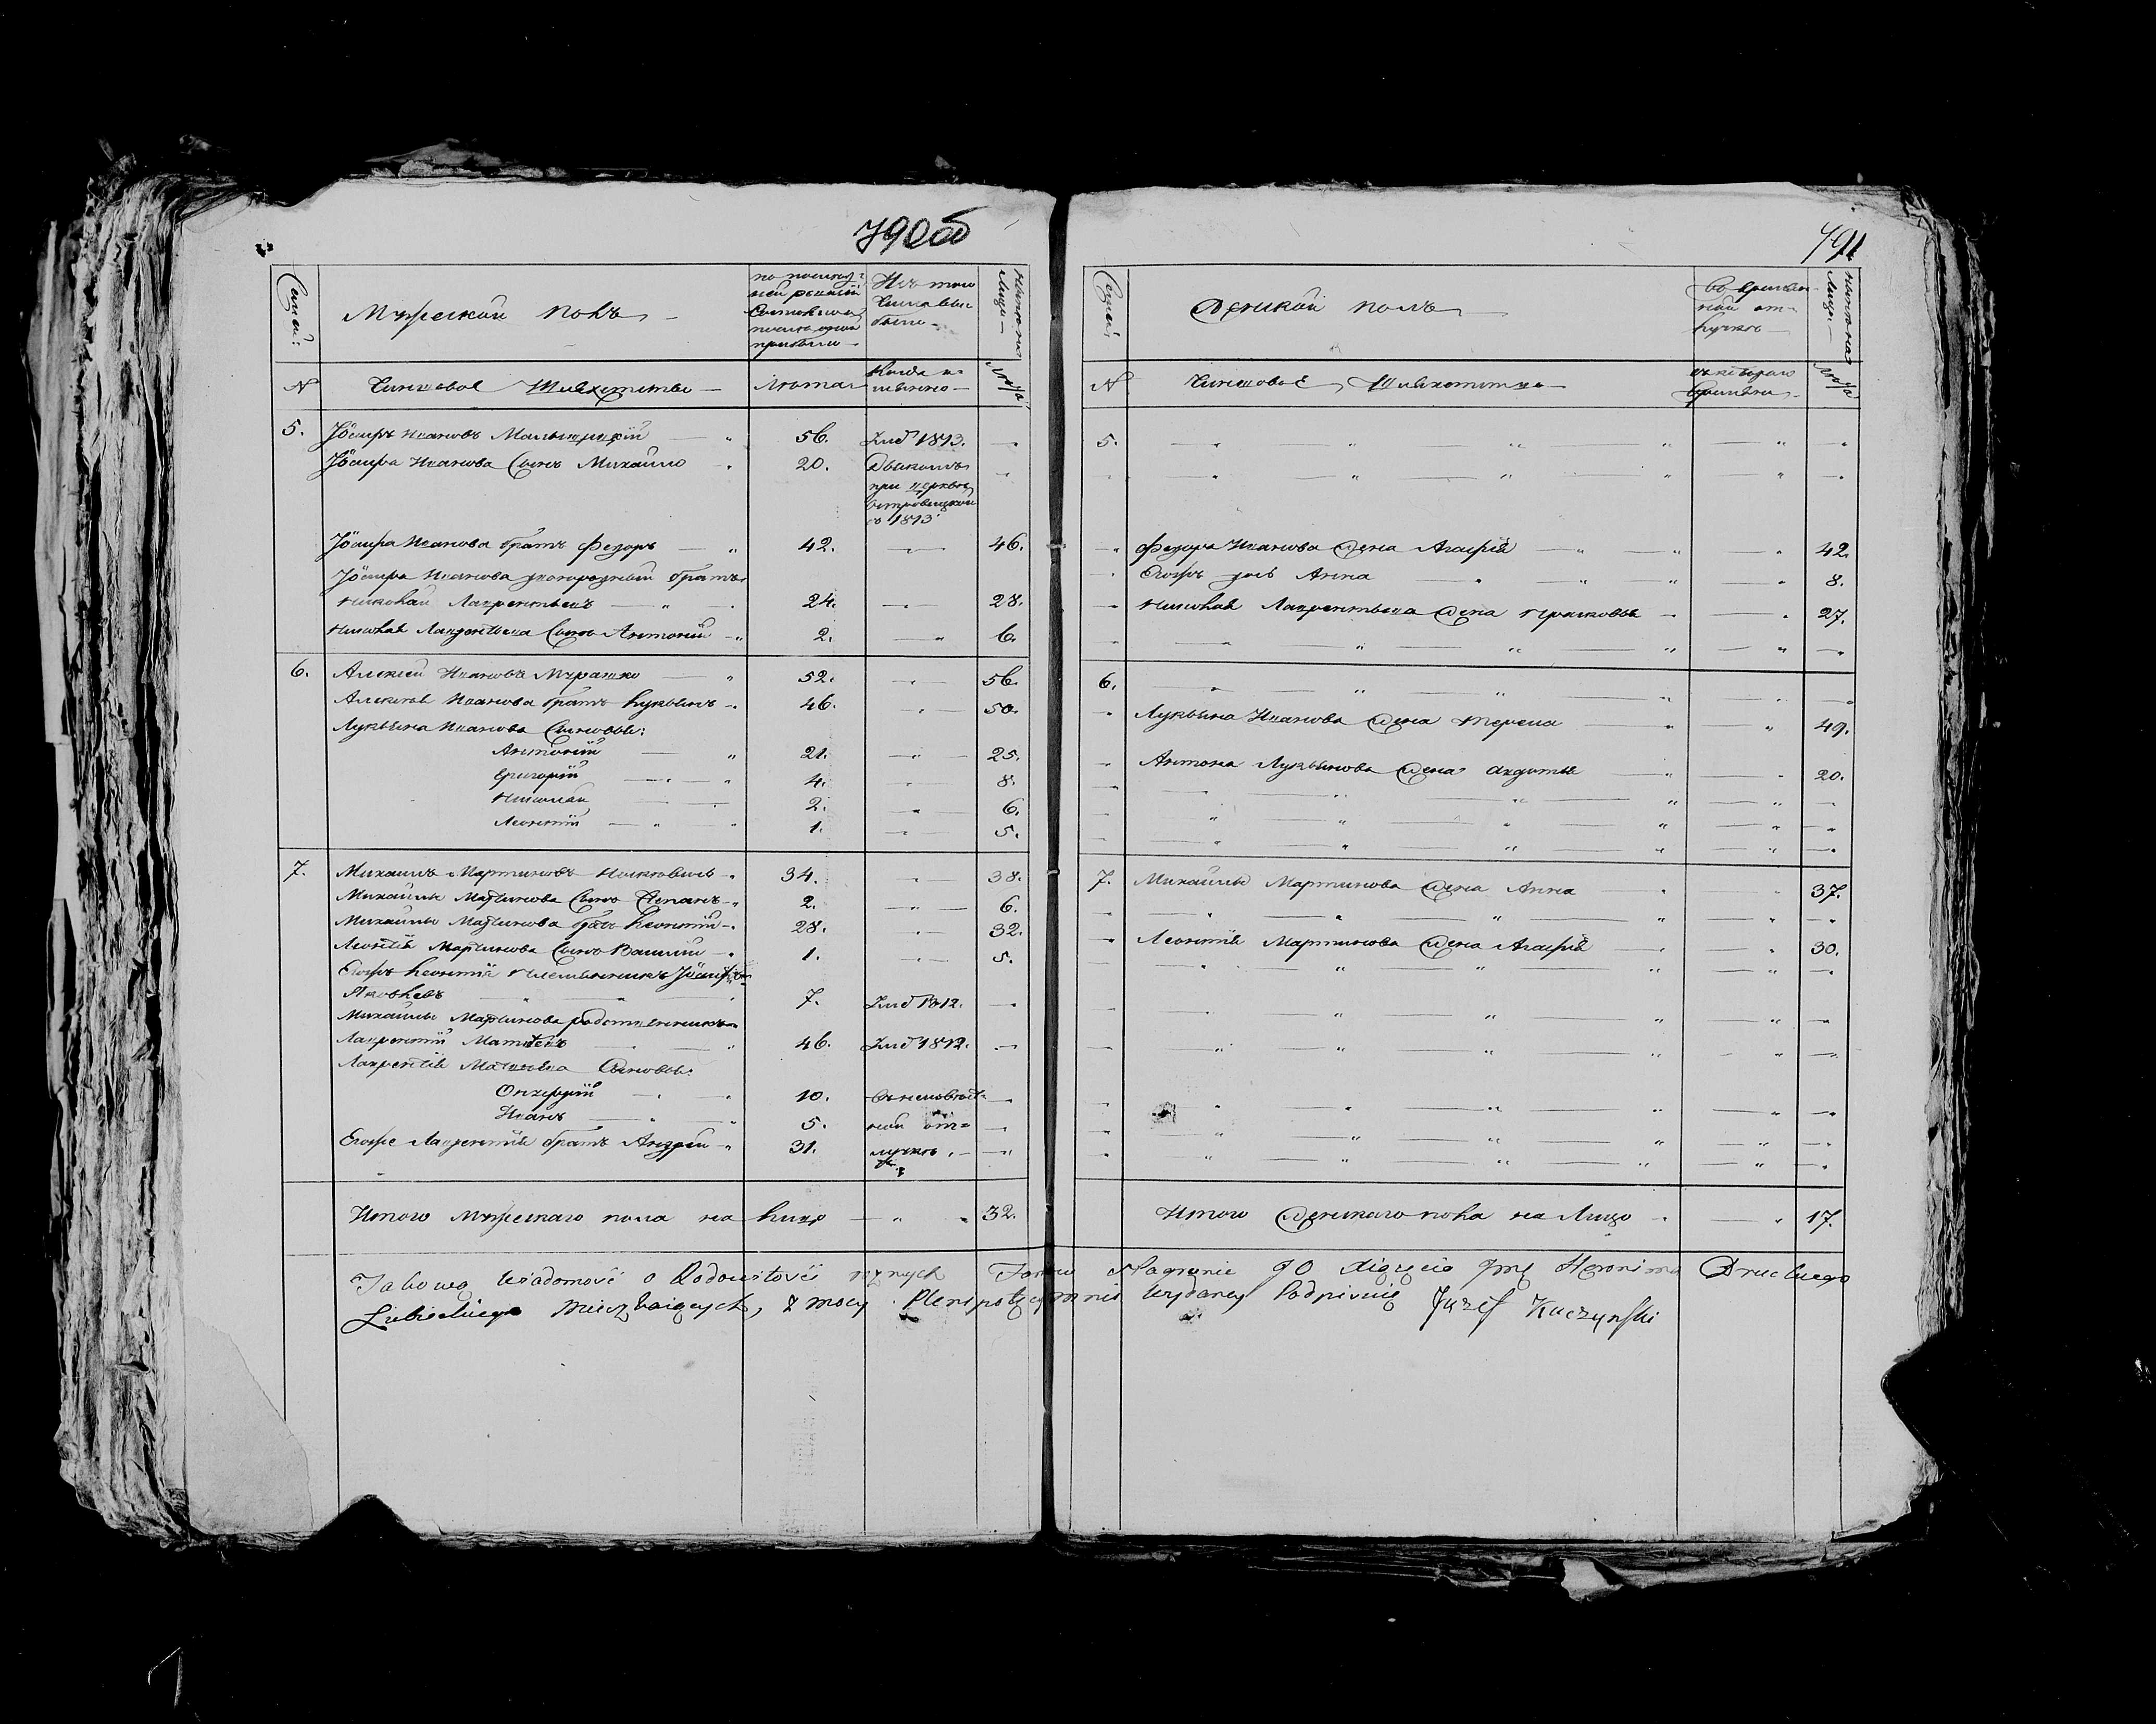 790об
Семьи:
Мужеской полъ
по послед=
ней ревизіи
Состояло и
после оной
прибыло
Изъ того
числа вы=
было
Ныне на
Лицо
N
Чиншовое Шляхетство
Лета
Когда и=
менно
Лета
5. Іосифъ Ивановъ 56. 1813.
Іосифа Иванова Сынъ Михайло 20.
при церкве
въ 1813
Іосифа Иванова братъ Федоръ 42. 46.
Іосифа Иванова двоюродный братъ
Николай Лаврентьевъ 24. 28.
Николая Лаврентьева Сынъ Антоній 2. 6.
6. Алексей Ивановъ Мурашко 52. 56.
Алексея Иванова братъ Лукьянъ 46. 50.
Лукьяна Иванова Сыновья:
Антоній 21. 25.
Григорій 4. 8.
Николай 2. 6.
Леонтій 1. 5.
7. Михайло Мартиновъ 34. 38.
Михайлы Мартинова Сынъ Степанъ 2. 6.
Михайлы Мартинова братъ Леонтій 28. 32.
Леонтія Мартинова Сынъ Василій 1. 5.
Егожъ Леонтія племянникъ Іосифъ
Яковлевъ 7. 1812.
Михайлы Мартинова родственникъ
Лаврентій Матвеевъ 46. 1812.
Лаврентія Матвеева Сыновья:
Онуфрій 10. Въ неизвест=
Иванъ 5. ной от=
Егоже Лаврентія братъ Андрей 31. лучке
Итого Мужескаго пола на лицо 32.
791.
Семьи:
Женской полъ
Во времен=
ной от=
лучке
Ныне на
Лицо
N
Чиншовое Шляхетство
съ котораго
времени
Лета
5.
Федора Иванова Жена Агафія 42.
Егожъ дочь Анна 8.
Николая Лаврентьева Жена Прасковья 27.
6.
Лукьяна Иванова Жена Тереса 49.
Антона Лукьянова Жена Авдотья 20.
7. Михайлы Мартинова Жена Анна 37.
Леонтія Мартинова Жена Агафія 30.
Итого Женскаго пола на Лицо 17.
Takową Wiadomość o Rodowitości roznych Gruncie JO Xiązęcia Jmę Heronima Druckiego
Lubeckiego Mieszkaiących, z mocy Plenipotencyi mnie wydaney Podpisuię Jozef Kuczynski